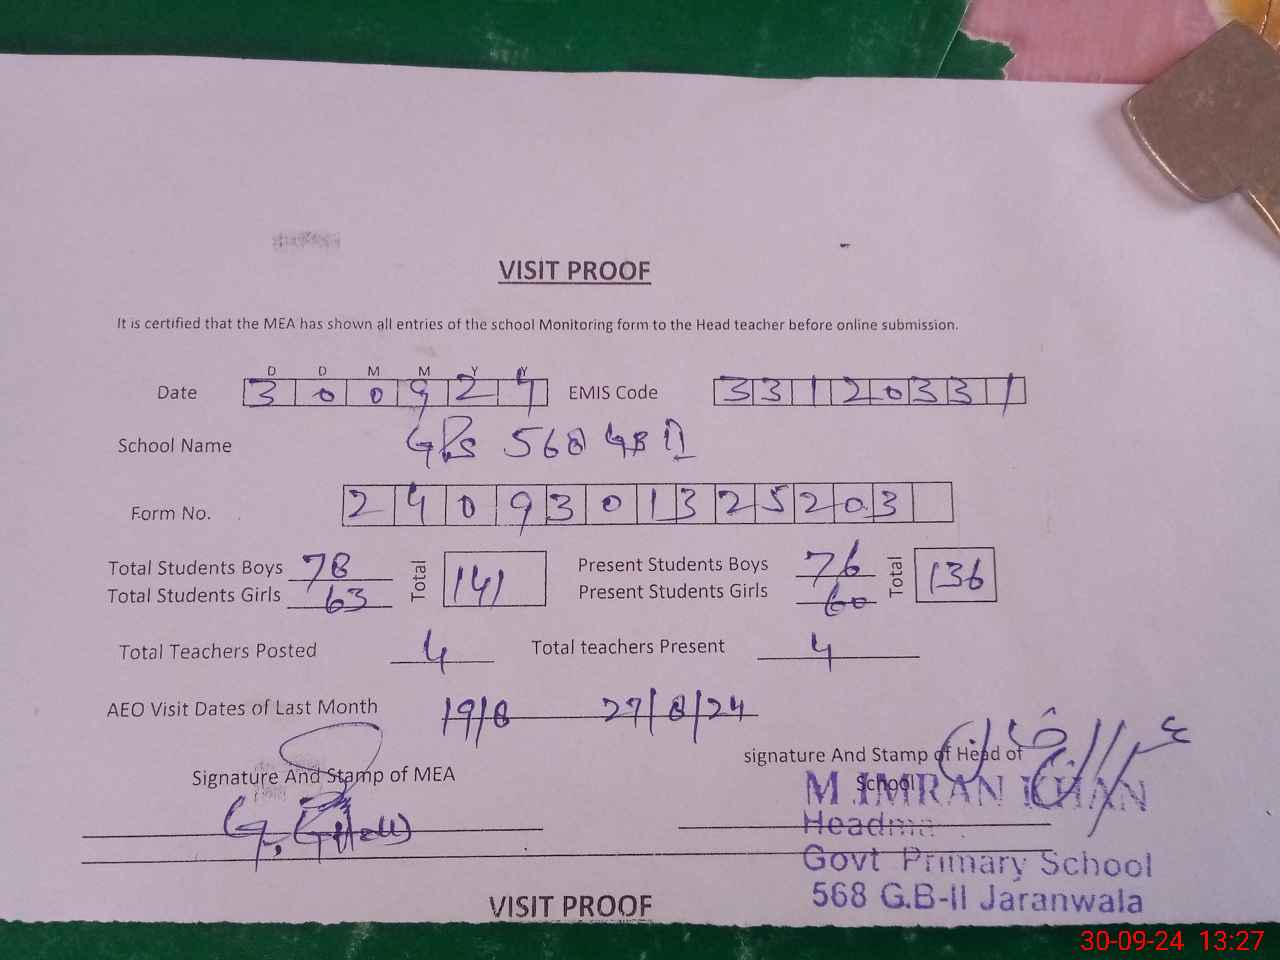 VISIT PROOF
It is certified that the MEA has shown all entries of the school Monitoring form to the Head teacher before online submission.
D D M M Y Y
Date 3 0 0 9 2 4 EMIS Code 3 3 1 2 0 3 3 1
School Name GPS 568 GB II
Form No. 2 4 0 9 3 0 1 3 2 5 2 0 3
Total Students Boys 78 Total 141 Present Students Boys 76 Total 136
Total Students Girls 63 Present Students Girls 60
Total Teachers Posted 4 Total teachers Present 4
AEO Visit Dates of Last Month 19/8 27/8/24
Signature And Stamp of MEA signature And Stamp of Head of School
M IMRAN KHAN
Govt Primary School
568 G.B-II Jaranwala
VISIT PROOF
30-09-24 13:27